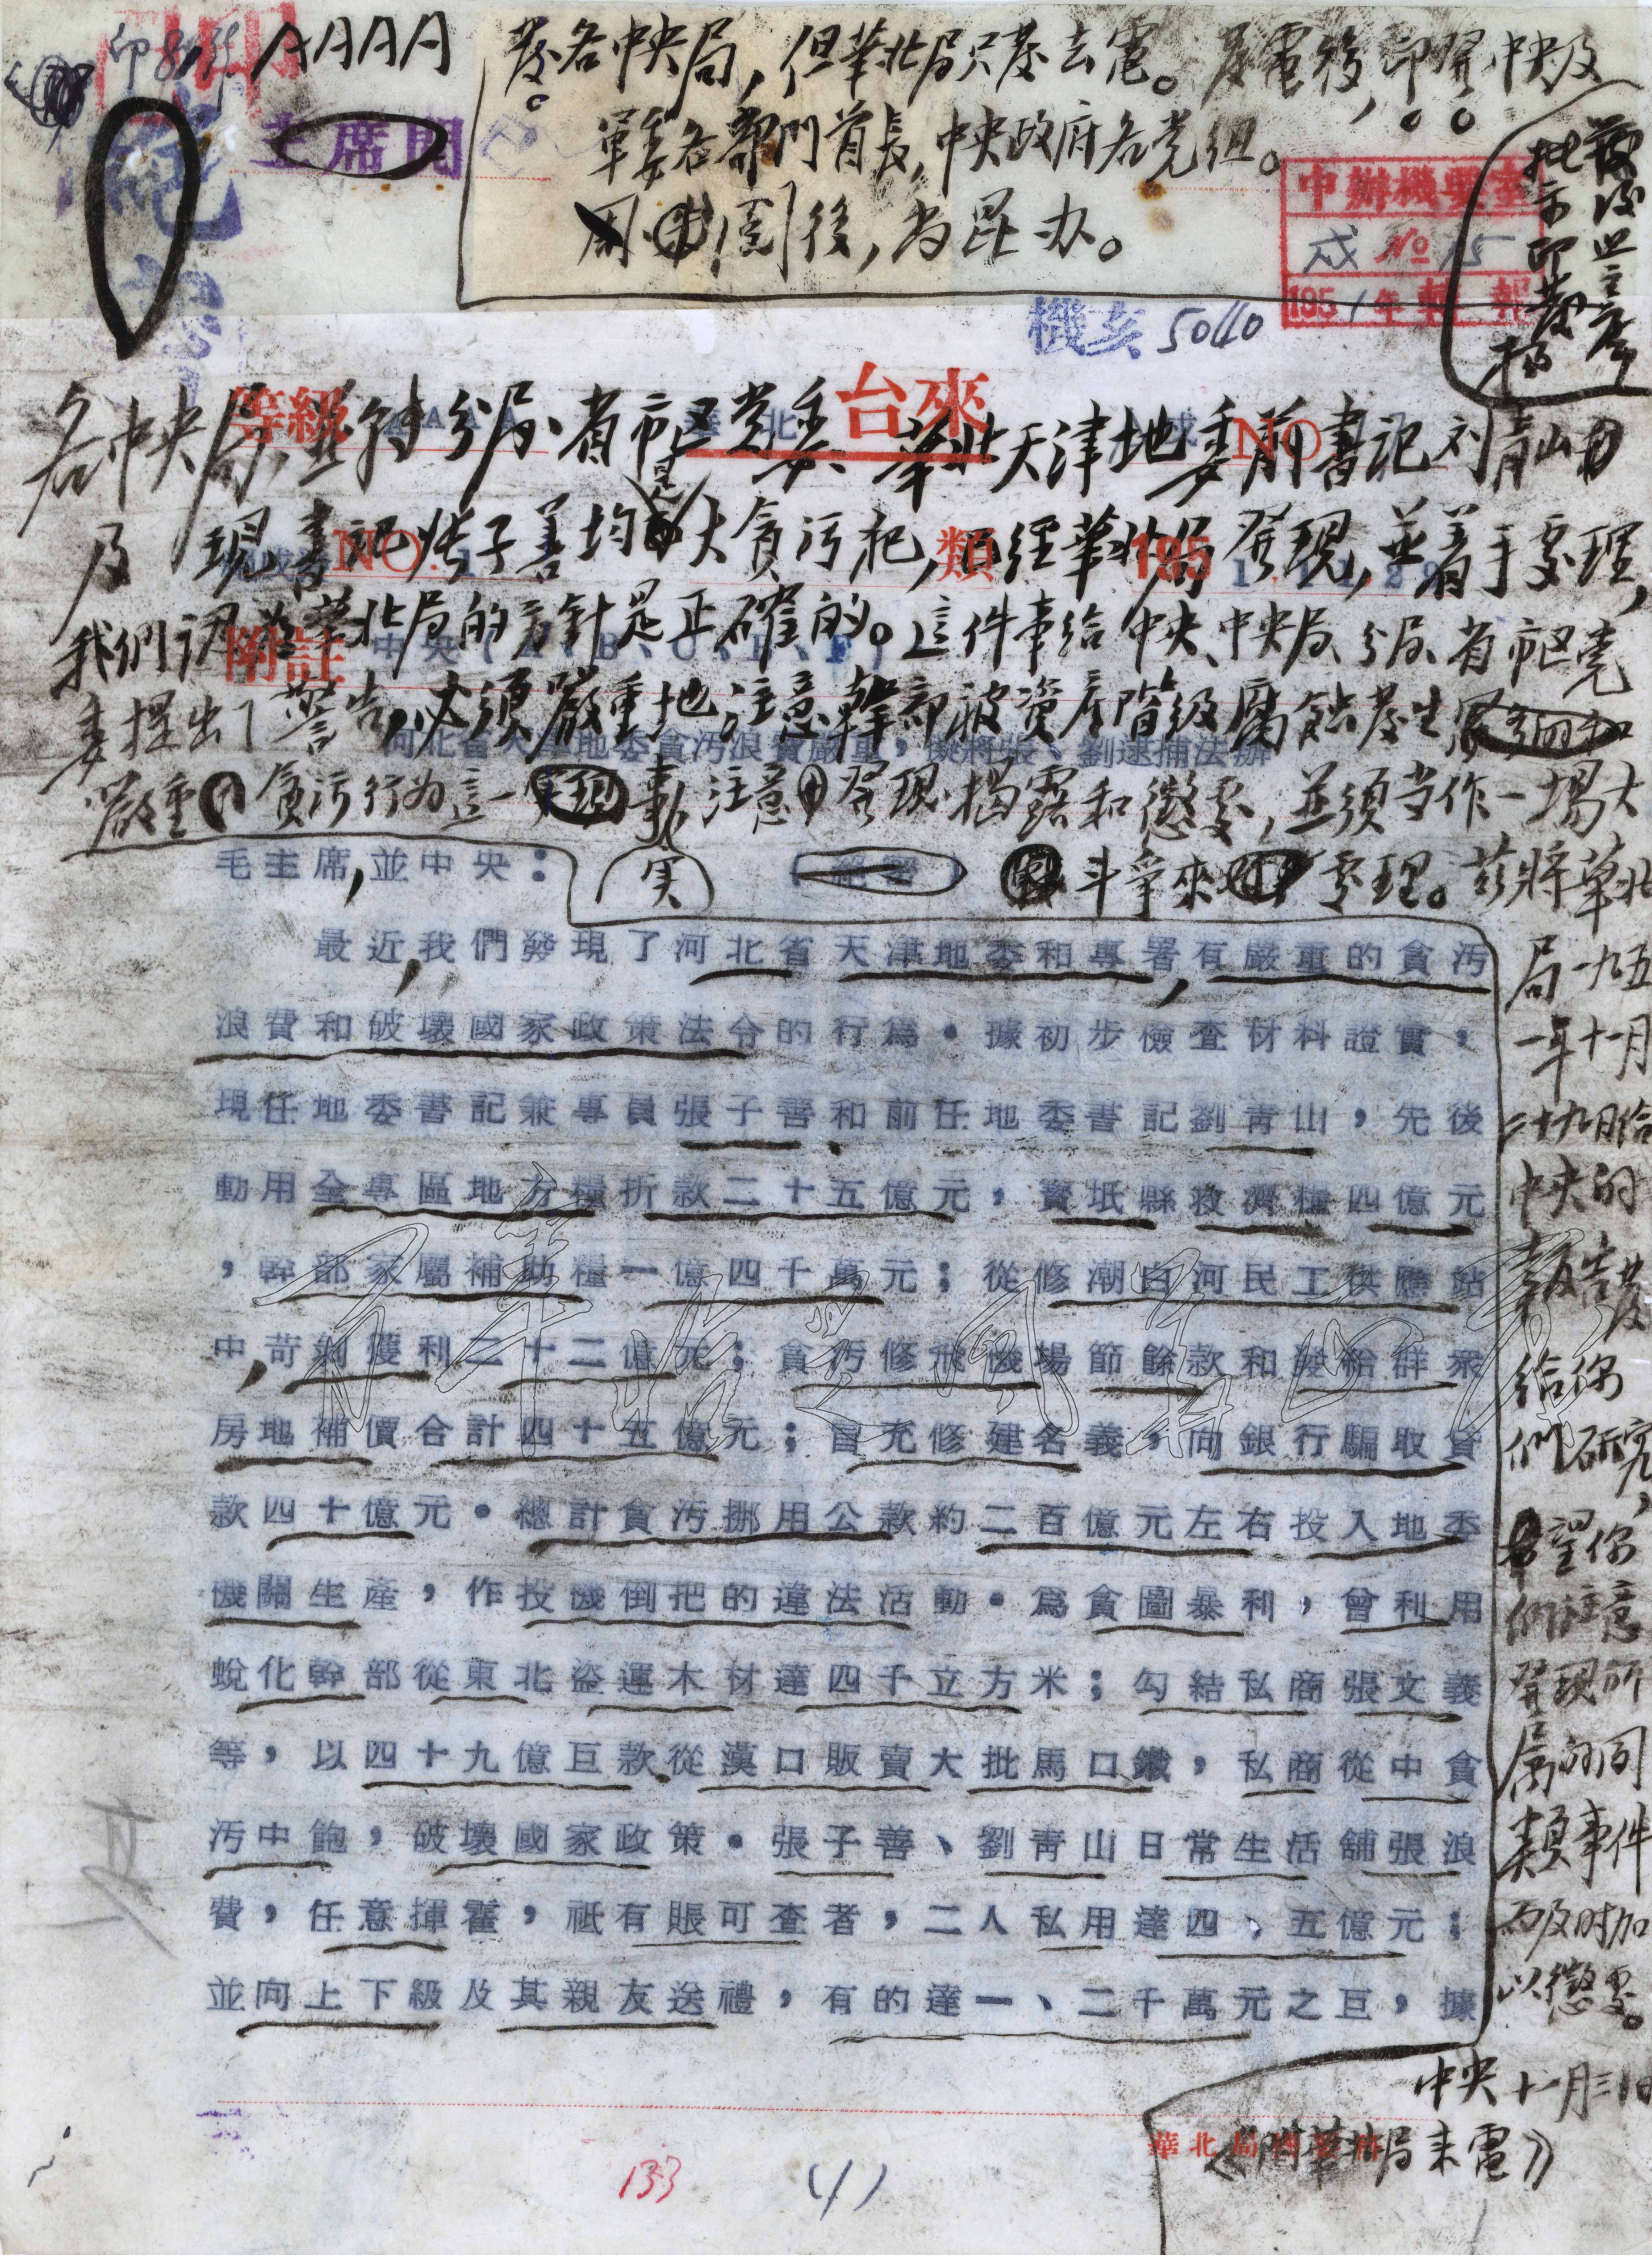 AAAA
發各中央局，但華北局只發去電。發電後，印發中央及
軍委各部門首長，中央政府各党组。
周閱後，尚昆办。
絕密
主席閱
中辦機要室
戍 No 15
1951年 報
機亥 5040
等級 AAAA 華北 台來 戍 NO
各中央局、並轉分局、省市区党委：華北天津地委前書記刘青山
及現書記张子善均是大貪污犯，已經華北局發現，並着手處理，
NO. 類 195
我們認為華北局的方針是正確的。這件事給中央、中央局、分局、省市区党
附註 中央
委提出了警告，必須嚴重地注意幹部被資產階級腐蝕發生
河北省天津地委貪污浪費嚴重，擬將張、劉逮捕法辦
嚴重貪污行为這一事实，注意發現、揭露和懲處，並須当作一場大
斗爭來處理。茲將華北
局一九五
一年十一月
二十九日給
中央的
報告發
給你
們研究，
希望你
們注意
發現所
属的同
類事件
而及时加
以懲處。
中央 十一月三十日
（附華北局来電）
毛主席，並中央：
最近，我們發現了河北省天津地委和專署，有嚴重的貪污
浪費和破壞國家政策法令的行爲。據初步檢查材料證實，
現任地委書記兼專員張子善和前任地委書記劉青山，先後
動用全專區地方糧折款二十五億元，寶坻縣救濟糧四億元
，幹部家屬補助糧一億四千萬元；從修潮白河民工供應站
中，苛剝獲利二十二億元；貪污修飛機場節餘款和發給群衆
房地補價合計四十五億元；冒充修建名義，向銀行騙取貸
款四十億元。總計貪污挪用公款約二百億元左右投入地委
機關生產，作投機倒把的違法活動。爲貪圖暴利，曾利用
蛻化幹部從東北盜運木材達四千立方米；勾結私商張文義
等，以四十九億巨款從漢口販賣大批馬口鐵，私商從中貪
污中飽，破壞國家政策。張子善、劉青山日常生活舖張浪
費，任意揮霍，祇有賬可查者，二人私用達四、五億元；
並向上下級及其親友送禮，有的達一、二千萬元之巨，據
133
(1)